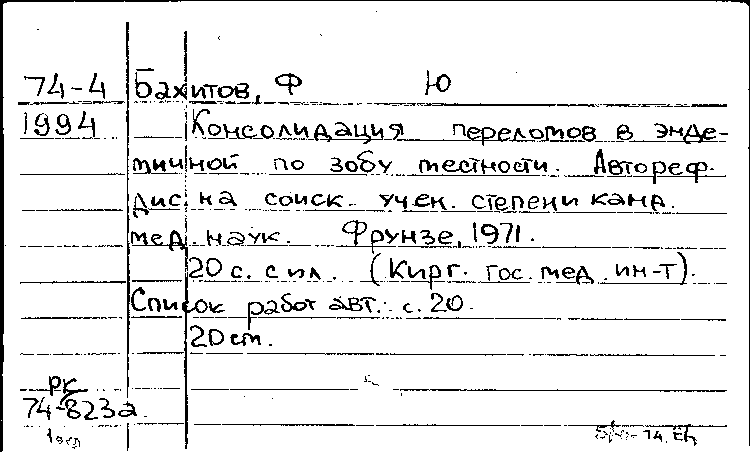 74-4 Бахитов, Ф Ю
1994 Консолидация переломов в энде-
мичной по зобу местности. Автореф.
дис. на соиск. учен. степени канд.
мед. наук. Фрунзе, 1971.
20 с. с ил. (Кирг. гос. мед. ин-т).
Список работ авт.: с. 20.
20 см.
РК
74-823а